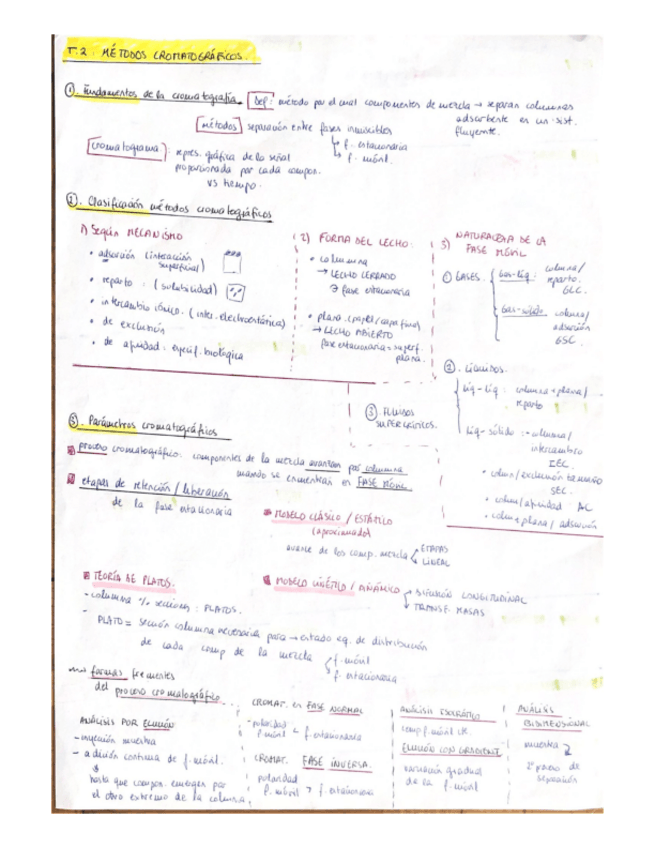 T.2. MÉTODOS CROMATOGRÁFICOS.
①. Fundamentos de la cromatografía. Def: método por el cual componentes de mezcla → separan columnas
adsorbente en un sist.
fluyente.
Métodos separación entre fases inmiscibles
↳ f. estacionaria
↳ f. móvil.
Cromatograma: repres. gráfica de la señal
proporcionada por cada compon.
vs tiempo.
②. Clasificación métodos cromatográficos
1) Según MECANISMO
• adsorción (interacción
superficial)
• reparto: (solubilidad)
• intercambio iónico. (inter. electrostática)
• de exclusión
• de afinidad: específ. biológica
2) FORMA DEL LECHO:
• columna
→ LECHO CERRADO
fase estacionaria
• plana (papel/capa fina)
→ LECHO ABIERTO
fase estacionaria = superf.
plana.
3) NATURALEZA DE LA
FASE MÓVIL
① GASES.
Gas-líq: columna/
reparto.
GLC.
Gas-sólido. columna/
adsorción
GSC.
②. Líquidos.
Líq-líq: columna + plana/
reparto
Líq-sólido: - columna/
intercambio
IEC.
• colum/exclusión
SEC.
• colum/afinidad AC
• colum + plana/adsorción
③. FLUIDOS
SUPERCRÍTICOS.
③. Parámetros cromatográficos
proceso cromatográfico: componentes de la mezcla avanzan por columna
cuando se encuentran en FASE MÓVIL
etapas de retención/liberación
de la fase estacionaria
MODELO CLÁSICO / ESTÁTICO
(aproximado)
avance de los comp. mezcla
ETAPAS
LINEAL
TEORÍA DE PLATOS.
- columna % secciones: PLATOS.
- PLATO = sección columna necesaria para → estado eq. de distribución
de cada comp de la mezcla
f. móvil
f. estacionaria
MODELO CINÉTICO / DINÁMICO
DIFUSIÓN LONGITUDINAL
TRANSF. MASAS
formas frecuentes
del proceso cromatográfico
ANÁLISIS POR ELUCIÓN
- inyección muestra
- adición continua de f. móvil.
hasta que compon. emergen por
el otro extremo de la columna.
CROMAT. en FASE NORMAL
- polaridad
f. móvil < f. estacionaria
CROMAT. FASE INVERSA.
polaridad
f. móvil > f. estacionaria
ANÁLISIS ISOCRÁTICO
comp f. móvil cte.
ELUCIÓN CON GRADIENTE
variación gradual
de la f. móvil
ANÁLISIS
BIDIMENSIONAL
muestra
2º proceso de
separación